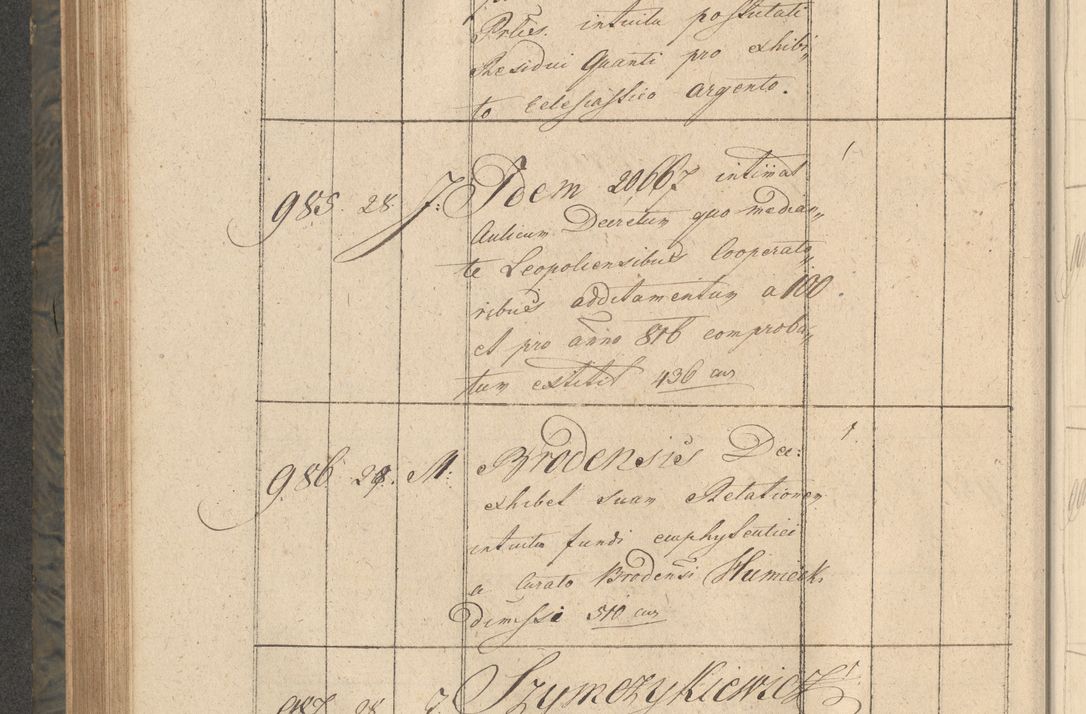 Prtes. intuitu postulati
Residui Quanti pro exhibi„
to Eclesiastico argento.
985. 28. J: Idem 20667 intimat
Aulicum Decretum quo median„
te Leopoliensibus Cooperato„
ribus additamentum a 100
et pro anno 816 comproba„
tum extitit 436 cur
986 28. M: Brodensis Dec:
exhibet suam Relationem
intuitu fundi emphyteutici
a Curato Brodensi
dimissi 510 cur
987 28 J. Szymczykiewicz